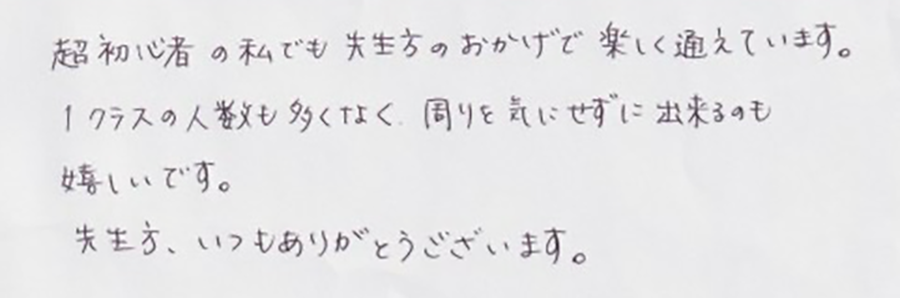 超初心者の私でも先生方のおかげで楽しく通えています。
1クラスの人数も多くなく、周りを気にせずに出来るのも
嬉しいです。
先生方、いつもありがとうございます。